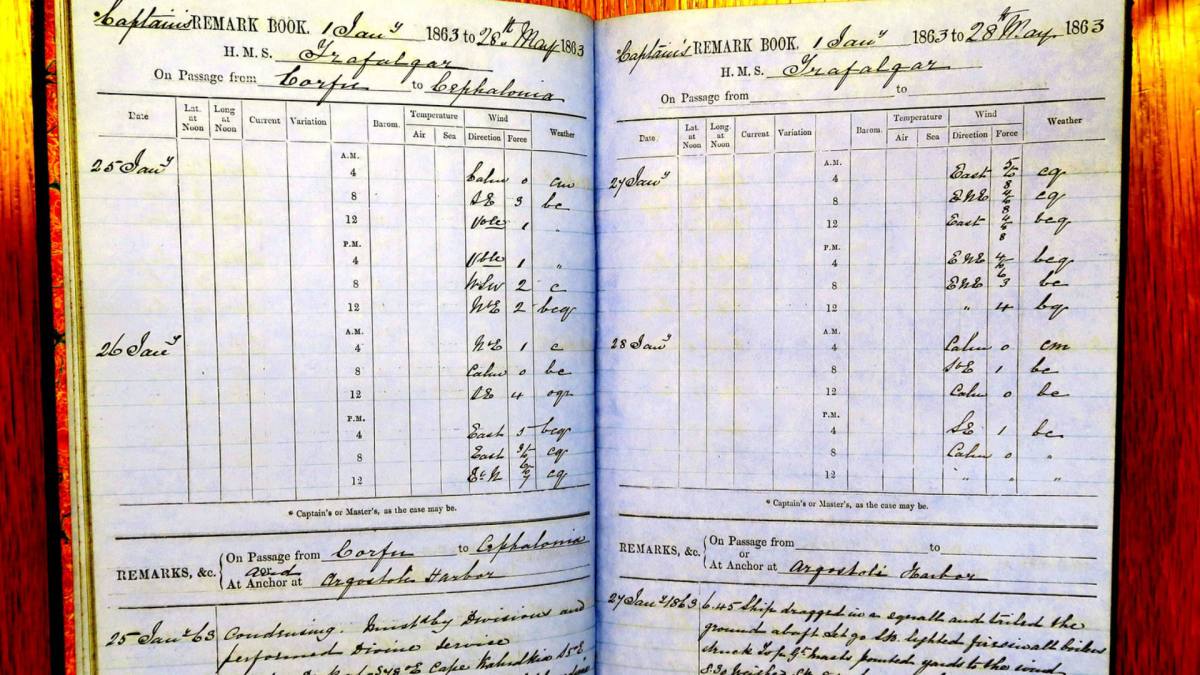 Captain's REMARK BOOK. 1 Jany 1863 to 28th May 1863
H. M. S. Trafalgar
On Passage from Corfu to Cephalonia
Date Lat. at Noon Long at Noon Current Variation Barom. Temperature Air Sea Wind Direction Force Weather
25 Jany
A.M.
4 Calm 0 cm
8 SE 3 bc
12 Vble 1 "
P.M.
4 Vble 1 "
8 WSW 2 c
12 NE 2 bcq
26 Jany
A.M.
4 NE 1 c
8 Calm 0 bc
12 SE 4
P.M.
4 East 5 bcq
8 East cq
12 EbN cq
* Captain's or Master's, as the case may be.
REMARKS, &c. On Passage from Corfu to Cephalonia
and
At Anchor at Argostoli Harbor
25 Jany 63 Condensing. Divisions and
performed Divine Service
Cape
Captain's REMARK BOOK. 1 Jany 1863 to 28th May 1863
H. M. S. Trafalgar
On Passage from to
Date. Lat. at Noon Long. at Noon Current Variation Barom. Temperature Air Sea Wind Direction Force Weather
27 Jany
A.M.
4 East cq
8 ENE cq
12 East bcq
P.M.
4 ENE bcq
8 ENE 3 bc
12 " 4 bq
28 Jany
A.M.
4 Calm 0 cm
8 1 bc
12 Calm 0 bc
P.M.
4 SE 1 bc
8 Calm 0 "
12 " " "
* Captain's or Master's, as the case may be.
REMARKS, &c. On Passage from to
or
At Anchor at Argostoli Harbor
27 Jany 1863 6.45 Ship dragged in a squall and tailed the
ground abaft let go lighted fires in all boilers
struck Top Gt Masts pointed yards to the wind
8.30 weighed